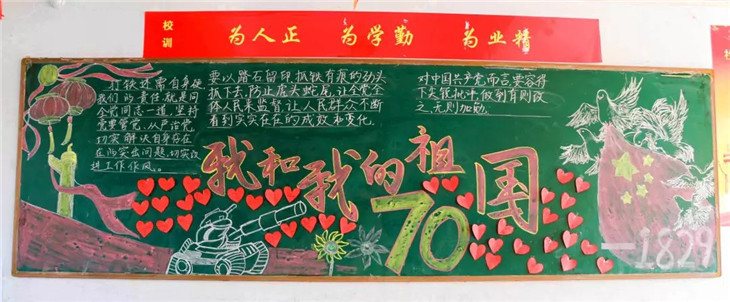 校训
为人正 为学勤 为业精
打铁还需自身硬
我们的责任就是同
全党同志一道,坚持
党要管党、从严治党,
切实解决自身存在
在的突出问题,切实改
进工作作风。
要以踏石留印、抓铁有痕的劲头
抓下去,防止虎头蛇尾,让全党全
体人民来监督,让人民群众不断
看到实实在在的成效和变化.
对中国共产党而言,要容得
下尖锐批评,做到有则改
之、无则加勉.
我和我的祖国
70
一1829
校